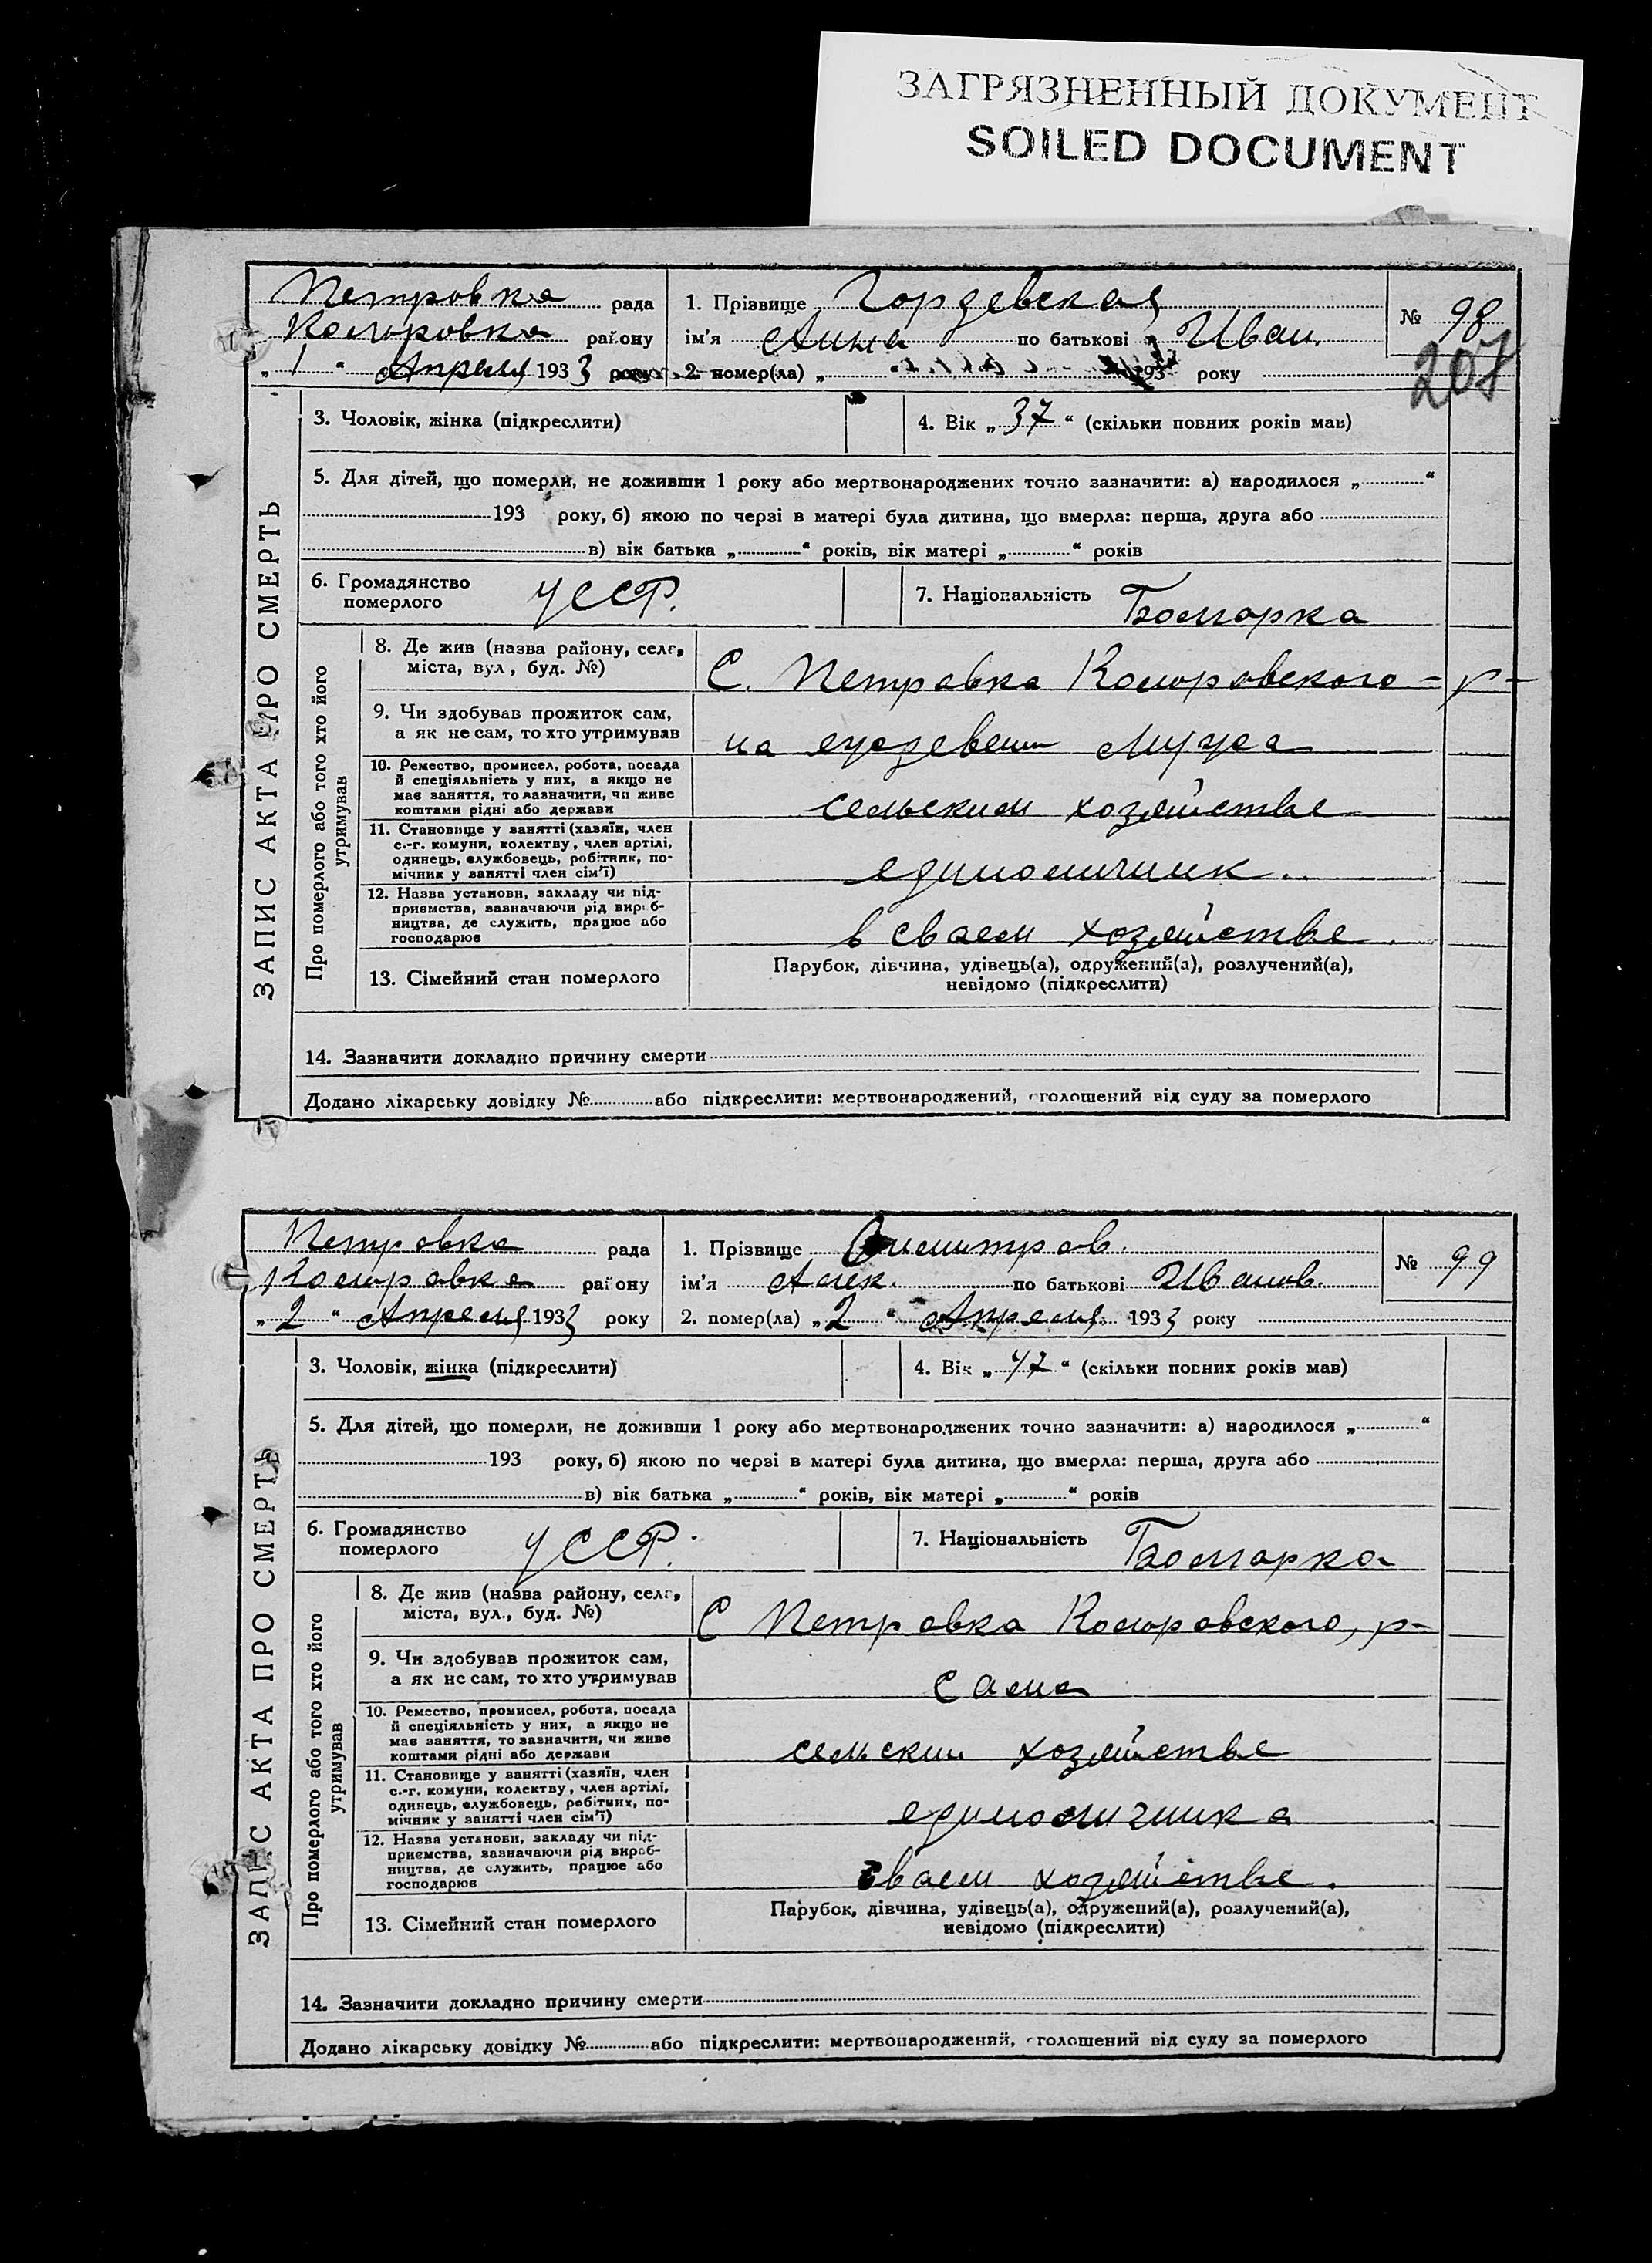 ЗАГРЯЗНЕННЫЙ ДОКУМЕНТ
SOILED DOCUMENT
Петровка рада
1. Прізвище
№ 98
району
ім'я Анна по батькові Иван.
207
„ 1 “ Апреля 1933 року
2. помер(ла) „ “ 193 року
ЗАПИС АКТА ПРО СМЕРТЬ
3. Чоловік, жінка (підкреслити)
4. Вік „ 37 “ (скільки повних років мав)
5. Для дітей, що померли, не доживши 1 року або мертвонароджених точно зазначити: а) народилося „ “
193 року, б) якою по черзі в матері була дитина, що вмерла: перша, друга або
в) вік батька „ “ років, вік матері „ “ років
6. Громадянство
померлого
УССР.
7. Національність
Болгарка
Про померлого або того хто його
утримував
8. Де жив (назва району, села,
міста, вул, буд. №)
С. Петровка р-
9. Чи здобував прожиток сам,
а як не сам, то хто утримував
на мужа
10. Ремество, промисел, робота, посада
й спеціяльність у них, а якщо не
має заняття, то зазначити, чи живе
коштами рідні або держави
сельским хозяйстве
11. Становище у занятті (хазяїн, член
с.-г. комуни, колектву, член артілі,
одинець, службовець, робітник, по-
мічник у занятті член сім'ї)
единоличник.
12. Назва установи, закладу чи під-
приємства, зазначаючи рід вироб-
ництва, де служить, працює або
господарює
в сваем хозяйстве.
13. Сімейний стан померлого
Парубок, дівчина, удівець(а), одружений(а), розлучений(а),
невідомо (підкреслити)
14. Зазначити докладно причину смерти
Додано лікарську довідку № або підкреслити: мертвонароджений, оголошений від суду за померлого
Петровка рада
1. Прізвище
№ 99
району
ім'я Алек. по батькові Иванов.
„ 2 “ Апреля 1933 року
2. помер(ла) „ 2 “ Апреля 1933 року
ЗАПИС АКТА ПРО СМЕРТЬ
3. Чоловік, жінка (підкреслити)
4. Вік „ 47 “ (скільки повних років мав)
5. Для дітей, що померли, не доживши 1 року або мертвонароджених точно зазначити: а) народилося „ “
193 року, б) якою по черзі в матері була дитина, що вмерла: перша, друга або
в) вік батька „ “ років, вік матері „ “ років
6. Громадянство
померлого
УССР.
7. Національність
Болгарка
Про померлого або того хто його
утримував
8. Де жив (назва району, села,
міста, вул., буд. №)
С Петровка р-
9. Чи здобував прожиток сам,
а як не сам, то хто утримував
сама
10. Ремество, промисел, робота, посада
й спеціяльність у них, а якщо не
має заняття, то зазначити, чи живе
коштами рідні або держави
сельским хозяйстве
11. Становище у занятті (хазяїн, член
с.-г. комуни, колектву, член артілі,
одинець, службовець, робітник, по-
мічник у занятті член сім'ї)
единоличника
12. Назва установи, закладу чи під-
приємства, зазначаючи рід вироб-
ництва, де служить, працює або
господарює
сваем хозяйстве.
13. Сімейний стан померлого
Парубок, дівчина, удівець(а), одружений(а), розлучений(а),
невідомо (підкреслити)
14. Зазначити докладно причину смерти
Додано лікарську довідку № або підкреслити: мертвонароджений, оголошений від суду за померлого